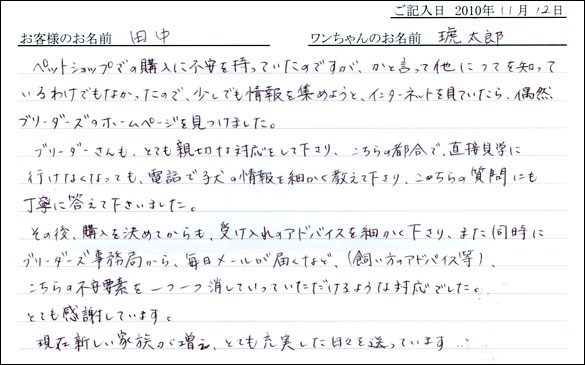 ご記入日 2010年 11月 12日
お客様のお名前 田中 ワンちゃんのお名前 琥太郎
ペットショップでの購入に不安を持っていたのですが、かと言って他につてを知って
いるわけでもなかったので、少しでも情報を集めようと、インターネットを見ていたら、偶然
ブリーダーズのホームページを見つけました。
ブリーダーさんも、とても親切な対応をして下さり、こちらの都合で、直接見学に
行けなくなっても、電話で子犬の情報を細かく教えて下さり、こちらの質問にも
丁寧に答えて下さいました。
その後、購入を決めてからも、受け入れのアドバイスを細かく下さり、また同時に
ブリーダーズ事務局から、毎日メールが届くなど、(飼い方のアドバイス等)、
こちらの不安要素を一つ一つ消していっていただけるような対応でした。
とても感謝しています。
現在新しい家族が増え、とても充実した日々を送っています…